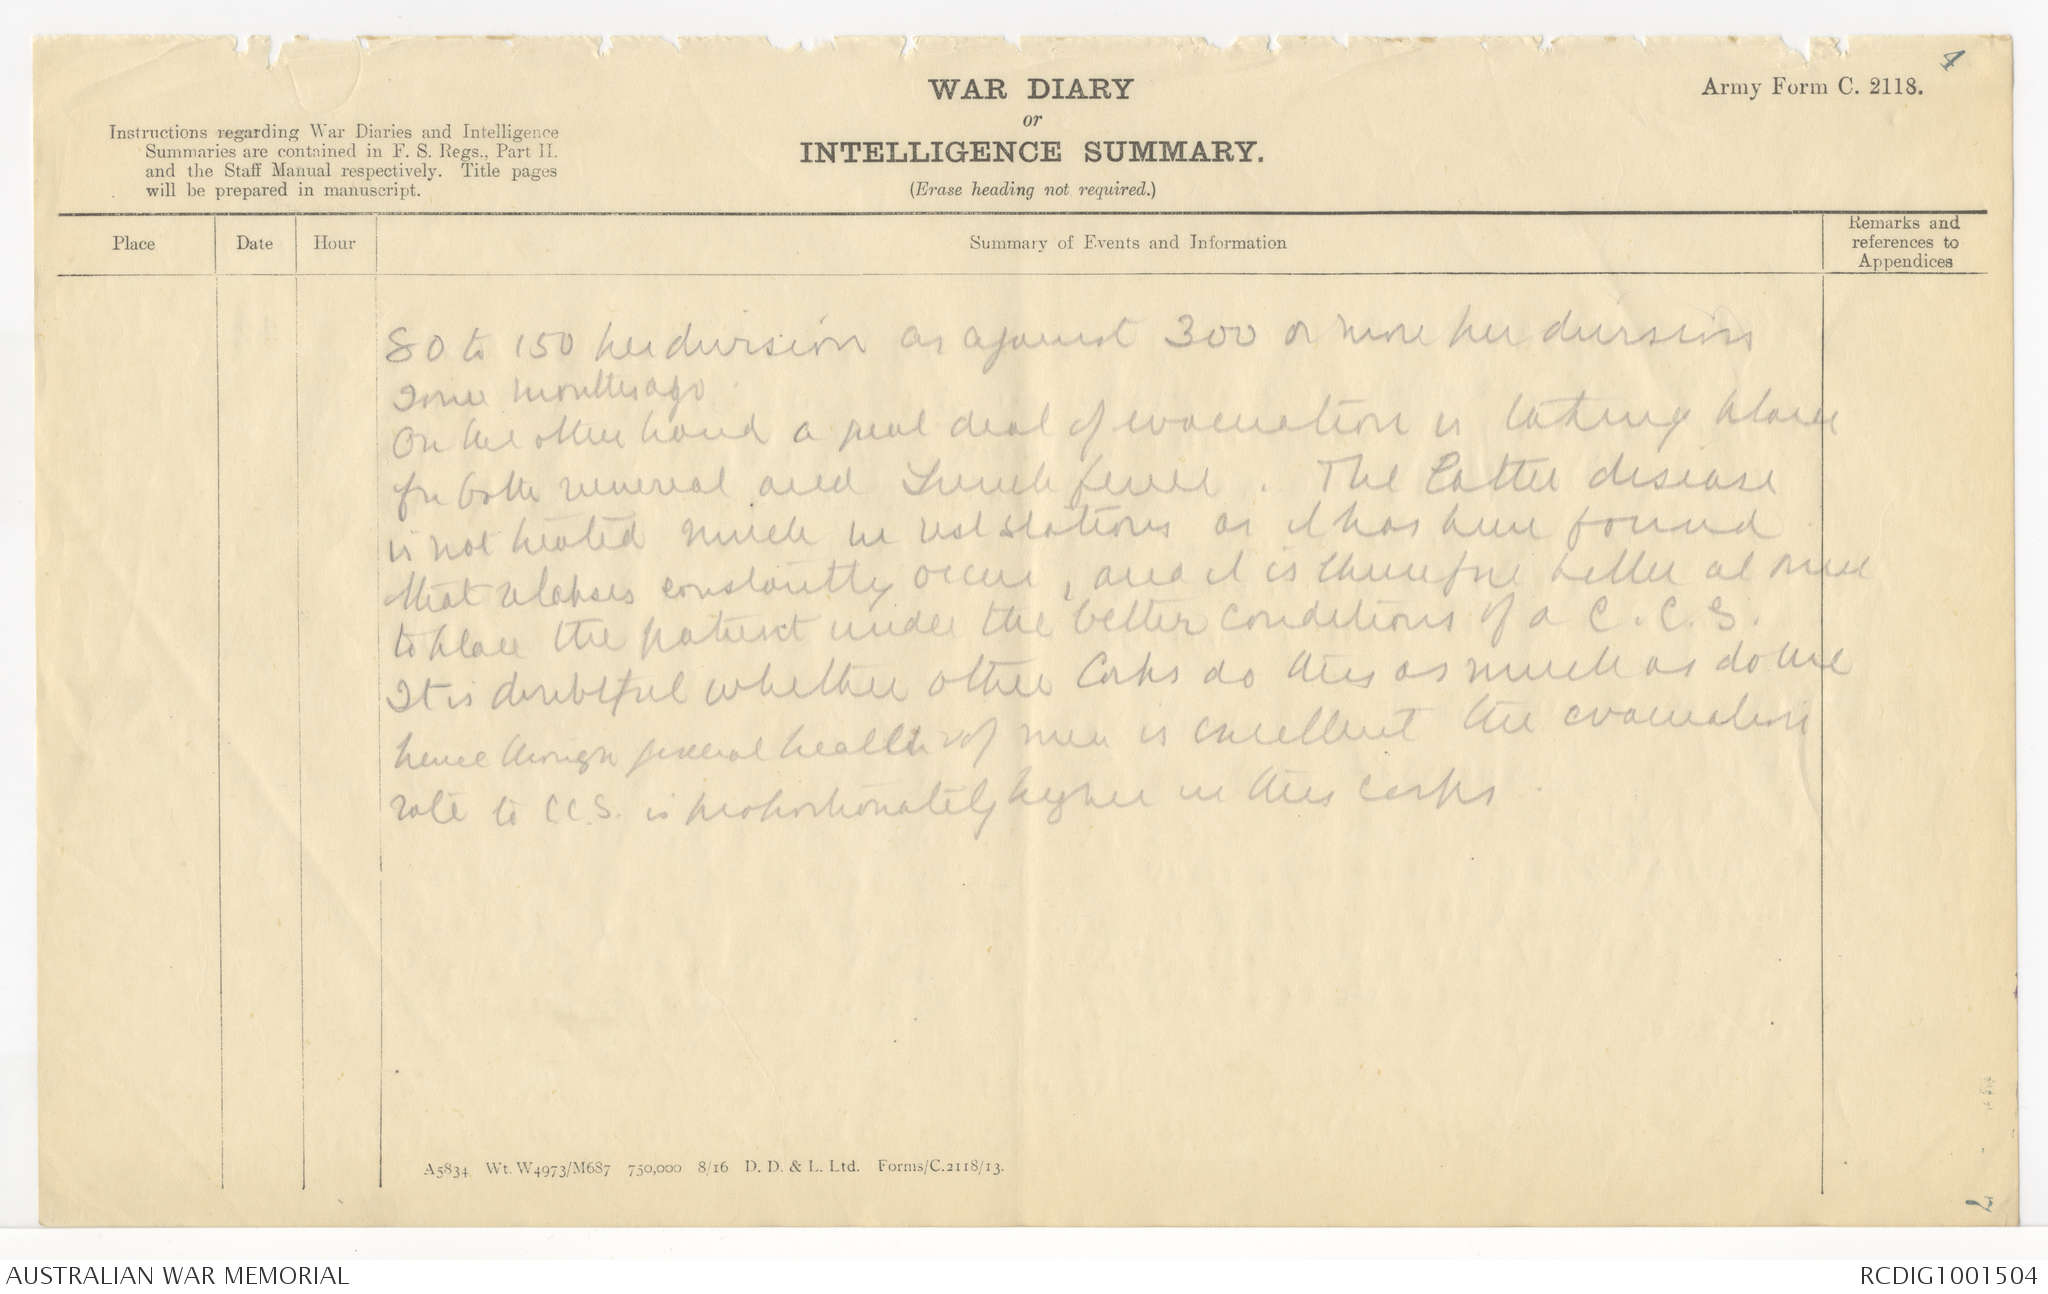 4
WAR DIARY
or
INTELLIGENCE SUMMARY.
(Erase heading not required.)
Army Form C. 2118.
Instructions regarding War Diaries and Intelligence
Summaries are contained in F. S. Regs., Part II.
and the Staff Manual respectively. Title pages
will be prepared in manuscript.
Place
Date
Hour
Summary of Events and Information
Remarks and
references to
Appendices
80 to 150 per division as against 300 or more per division
some months ago.
On the other hand a great deal of evacuation is taking place
for both venereal and Trench fever. The latter disease
is not treated much in rest stations as it has been found
that relapses constantly occur, and it is therefore better at once
to place the patient under the better conditions of a C.C.S.
It is doubtful whether other Corps do this as much as do we
hence though general health of men is excellent the evacuation
rate to C.C.S. is proportionately higher in this corps.
A5834 Wt. W4973/M687 750,000 8/16 D. D. & L. Ltd. Forms/C.2118/13.
AUSTRALIAN WAR MEMORIAL
RCDIG1001504